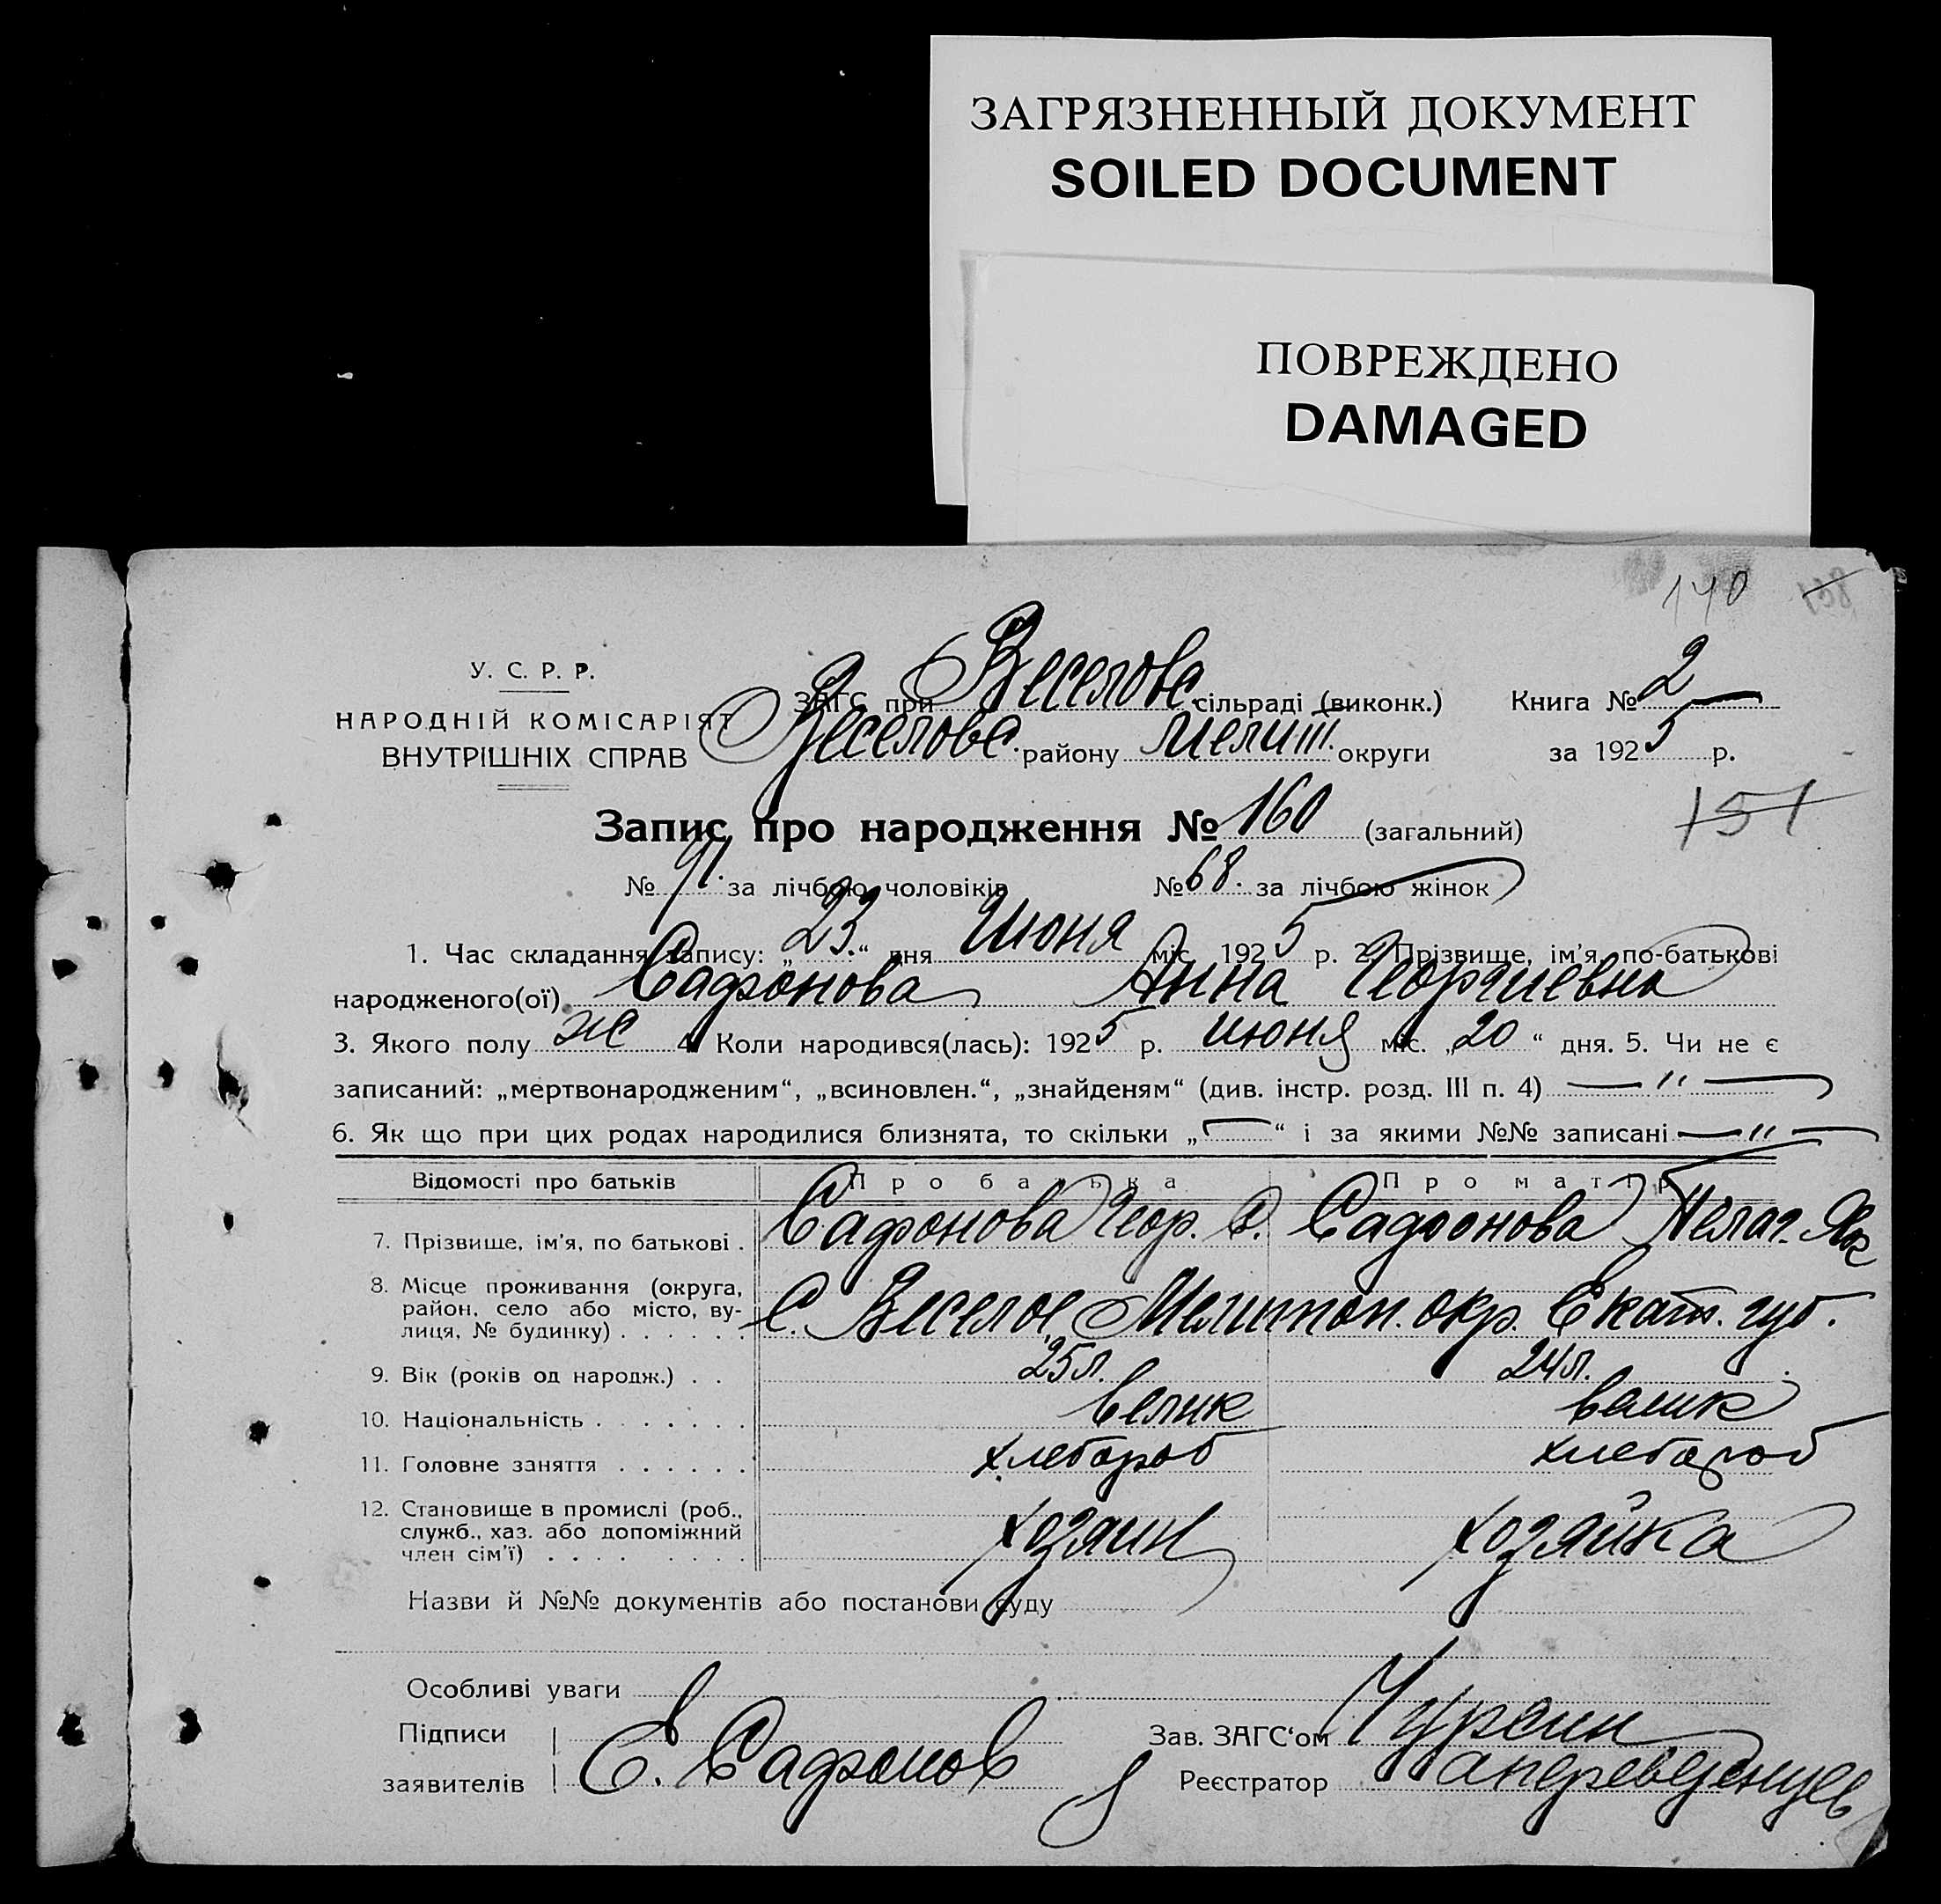 ЗАГРЯЗНЕННЫЙ ДОКУМЕНТ
SOILED DOCUMENT
ПОВРЕЖДЕНО
DAMAGED
140
У. С. Р. Р.
НАРОДНІЙ КОМІСАРІЯТ
ВНУТРІШНІХ СПРАВ
ЗАГС при Веселовс. сільраді (виконк.) Книга № 2
Веселовс. району Мелит. округи за 1925 р.
Запис про народження № 160 (загальний)
151
№ 91. за лічбою чоловіків № 68. за лічбою жінок
1. Час складання запису: „23.“ дня Июня міс. 1925 р. 2. Прізвище, ім'я, по-батькові
народженого(ої) Сафонова Анна Георгиевна
3. Якого полу ж 4. Коли народився(лась): 1925 р. июня міс. „20“ дня. 5. Чи не є
записаний: „мертвонародженим“, „всиновлен.“, „знайденям“ (див. інстр. розд. III п. 4) — " —
6. Як що при цих родах народилися близнята, то скільки „—“ і за якими №№ записані — " —
Відомості про батьків Про батька Про матір
7. Прізвище, ім'я, по батькові . Сафонова Геор. С. Сафонова Пелаг. Як
8. Місце проживання (округа,
район, село або місто, ву-
лиця, № будинку) . . . . . . С. Веселое, Мелитоп. окр. Екат. губ.
9. Вік (років од народж.) . . 25 л. 24 л.
10. Національність . . . . . . . велик велик
11. Головне заняття . . . . . . хлебороб хлебороб
12. Становище в промислі (роб.,
служб., хаз. або допоміжний
член сім'ї) . . . . . . . . . хозяин хозяйка
Назви й №№ документів або постанови суду
Особливі уваги
Підписи
заявителів Е. Сафонов
Зав. ЗАГС'ом Чурсин
Реєстратор